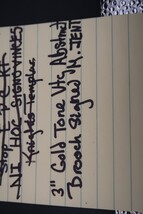 NI HOC SIGNO VINCES
Knights Templar
3" Gold Tone Vtg Abstract
Brooch Signed M. JENT